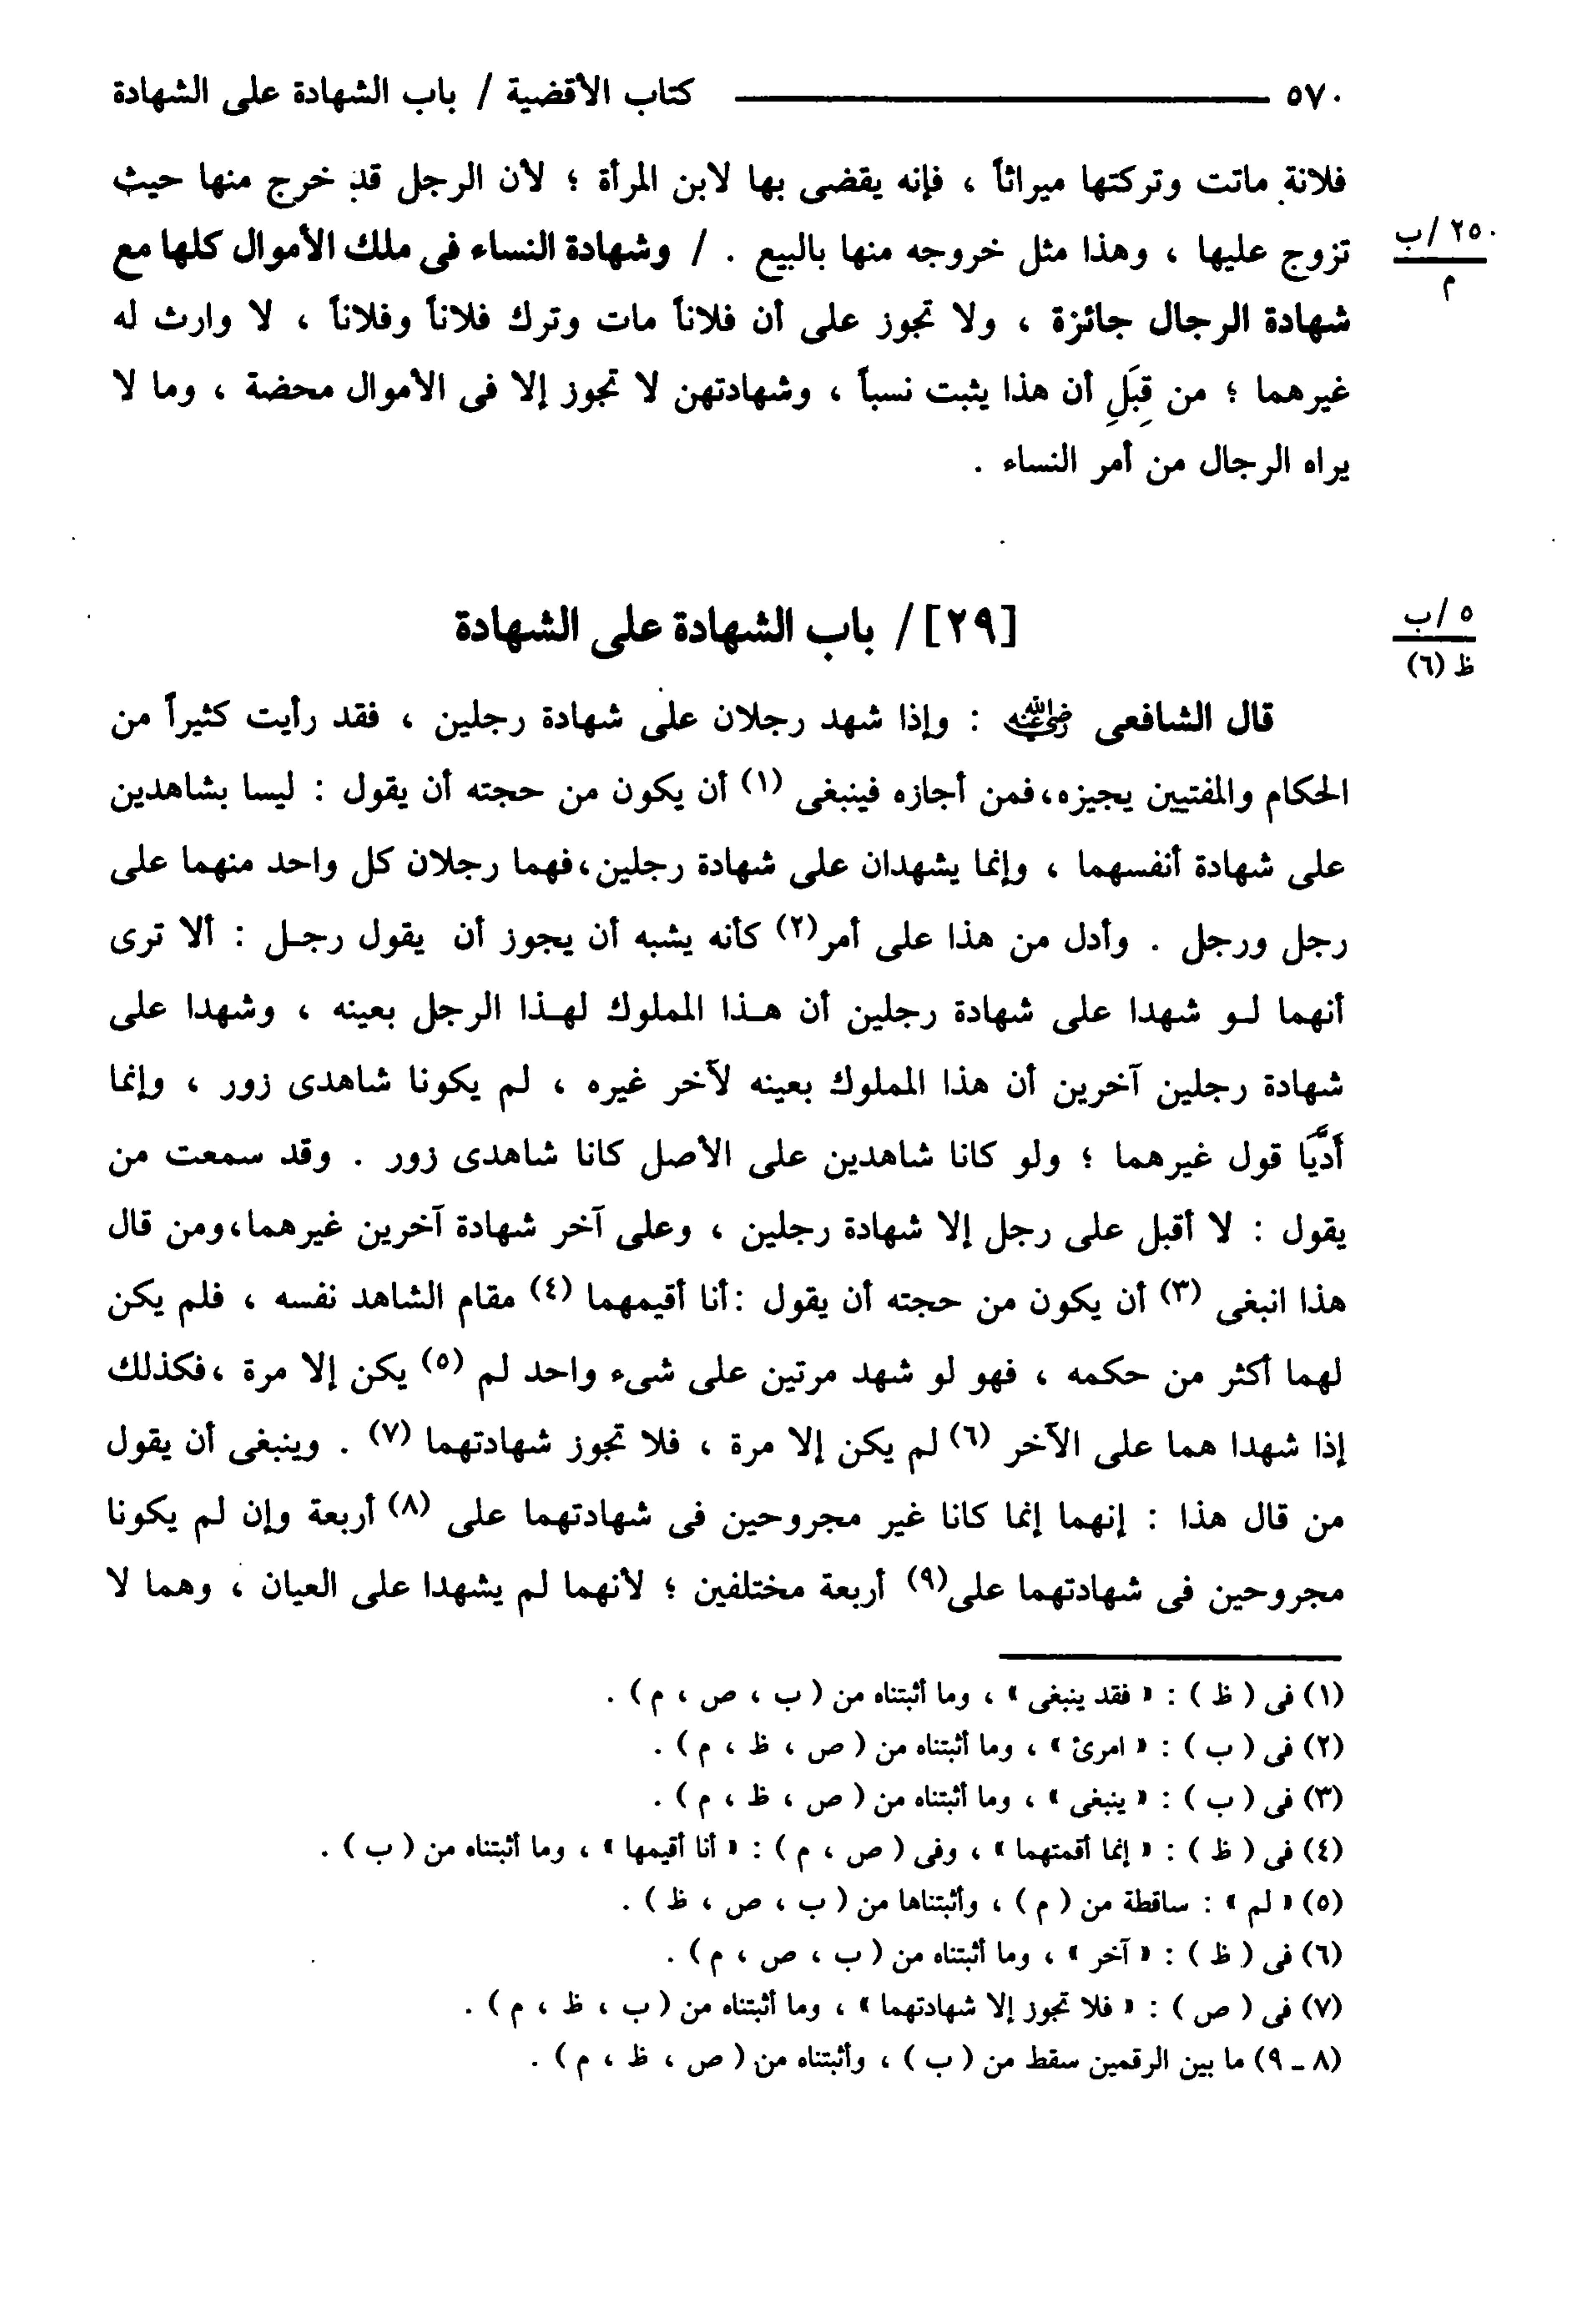 ٥٧٠ ــــــــــــــــــــــــــــ كتاب الأقضية / باب الشهادة على الشهادة
فلانة ماتت وتركتها ميراثاً ، فإنه يقضى بها لابن المرأة ؛ لأن الرجل قد خرج منها حيث
٢٥٠ /ب
م
تزوج عليها ، وهذا مثل خروجه منها بالبيع . / وشهادة النساء فى ملك الأموال كلها مع
شهادة الرجال جائزة ، ولا تجوز على أن فلاناً مات وترك فلاناً وفلاناً ، لا وارث له
غيرهما ؛ من قِبَلِ أن هذا يثبت نسباً ، وشهادتهن لا تجوز إلا فى الأموال محضة ، وما لا
يراه الرجال من أمر النساء .
٥ /ب
ظ (٦)
[٢٩] / باب الشهادة على الشهادة
قال الشافعى رضي الله عنه : وإذا شهد رجلان على شهادة رجلين ، فقد رأيت كثيراً من
الحكام والمفتيين يجيزه،فمن أجازه فينبغى (١) أن يكون من حجته أن يقول : ليسا بشاهدين
على شهادة أنفسهما ، وإنما يشهدان على شهادة رجلين،فهما رجلان كل واحد منهما على
رجل ورجل . وأدل من هذا على أمر(٢) كأنه يشبه أن يجوز أن يقول رجـل : ألا ترى
أنهما لـو شهدا على شهادة رجلين أن هـذا المملوك لهـذا الرجل بعينه ، وشهدا على
شهادة رجلين آخرين أن هذا المملوك بعينه لآخر غيره ، لم يكونا شاهدى زور ، وإنما
أَدَّيَا قول غيرهما ؛ ولو كانا شاهدين على الأصل كانا شاهدى زور . وقد سمعت من
يقول : لا أقبل على رجل إلا شهادة رجلين ، وعلى آخر شهادة آخرين غيرهما،ومن قال
هذا انبغى (٣) أن يكون من حجته أن يقول :أنا أقيمهما (٤) مقام الشاهد نفسه ، فلم يكن
لهما أكثر من حكمه ، فهو لو شهد مرتين على شىء واحد لم (٥) يكن إلا مرة ،فكذلك
إذا شهدا هما على الآخر (٦) لم يكن إلا مرة ، فلا تجوز شهادتهما (٧) . وينبغى أن يقول
من قال هذا : إنهما إنما كانا غير مجروحين فى شهادتهما على (٨) أربعة وإن لم يكونا
مجروحين فى شهادتهما على(٩) أربعة مختلفين ؛ لأنهما لم يشهدا على العيان ، وهما لا
(١) فى ( ظ ) : « فقد ينبغى » ، وما أثبتناه من ( ب ، ص ، م ) .
(٢) فى ( ب ) : « امرئ » ، وما أثبتناه من ( ص ، ظ ، م ) .
(٣) فى ( ب ) : « ينبغى » ، وما أثبتناه من ( ص ، ظ ، م ) .
(٤) فى ( ظ ) : « إنما أقمتهما » ، وفى ( ص ، م ) : « أنا أقيمها » ، وما أثبتناه من ( ب ) .
(٥) « لم » : ساقطة من ( م ) ، وأثبتناها من ( ب ، ص ، ظ ) .
(٦) فى ( ظ ) : « آخر » ، وما أثبتناه من ( ب ، ص ، م ) .
(٧) فى ( ص ) : « فلا تجوز إلا شهادتهما » ، وما أثبتناه من ( ب ، ظ ، م ) .
(٨ ـ ٩) ما بين الرقمين سقط من ( ب ) ، وأثبتناه من ( ص ، ظ ، م ) .